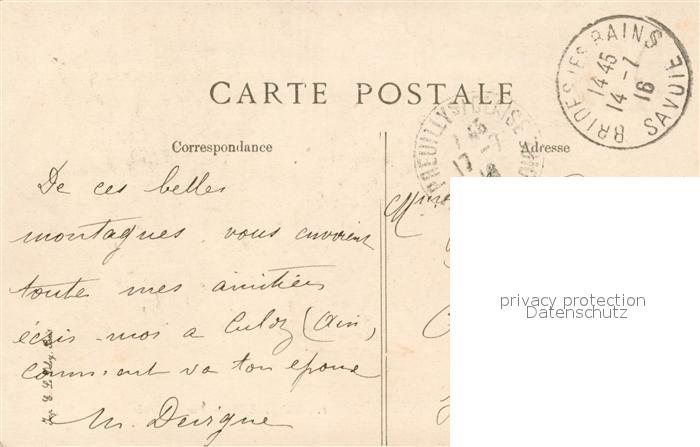 CARTE POSTALE
BRIDES LES BAINS
14 45
14 - 7
16
SAVOIE
PREUILLY S/ CLAISE
17 - 7
16
Correspondance
Adresse
De ces belles
montagnes vous envoient
toutes mes amitiés
écris-moi a Culoz (Ain)
comment va ton épouse
M.
Mme
privacy protection
Datenschutz